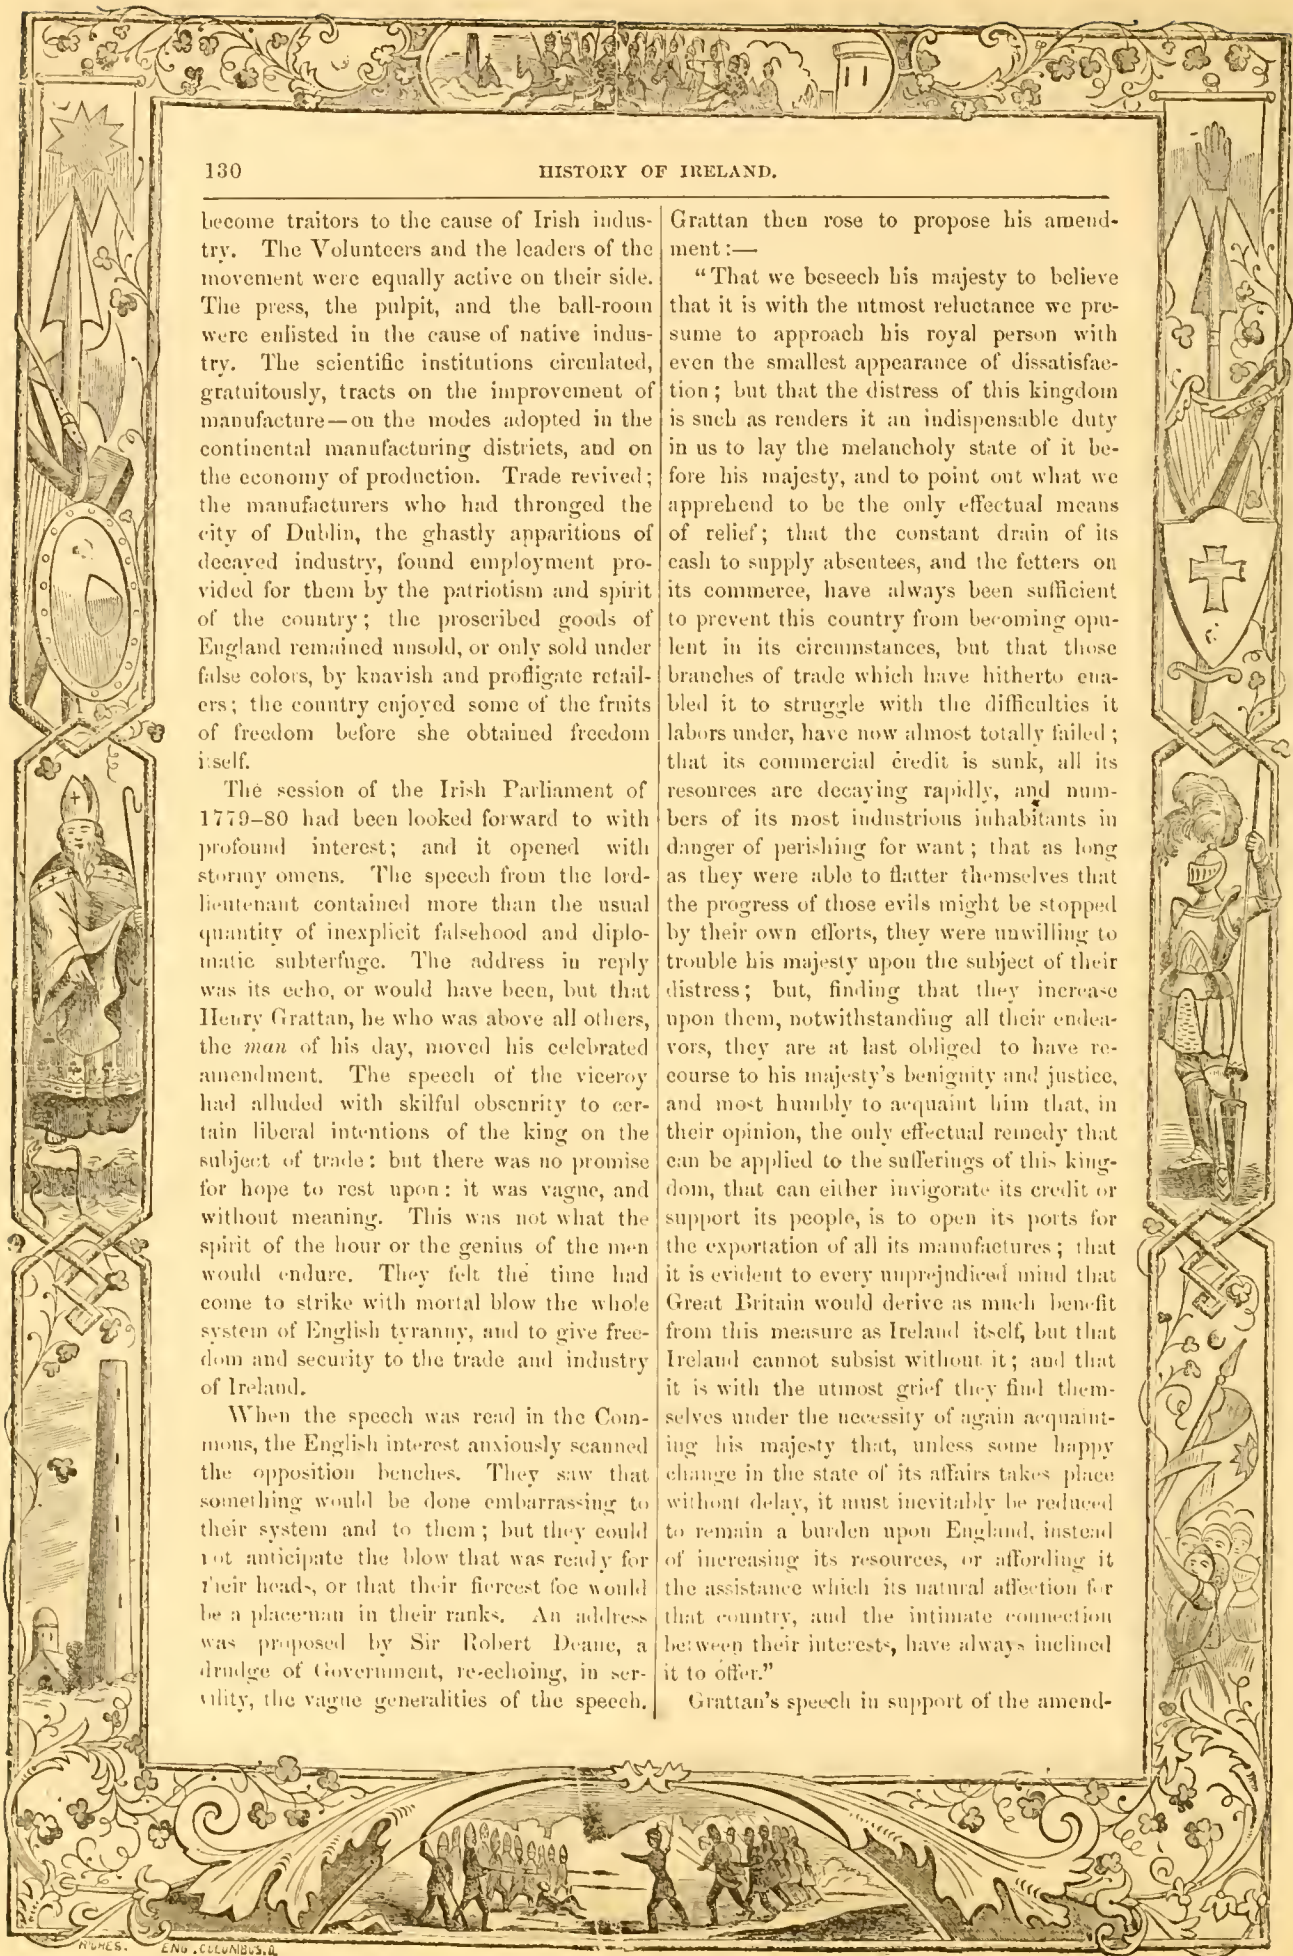 130
HISTORY OF IRELAND.
become traitors to the cause of Irish indus-
try. The Volunteers and the leaders of the
movement were equally active on their side.
The press, the pulpit, and the ball-room
were enlisted in the cause of native indus-
try. The scientific institutions circulated,
gratuitously, tracts on the improvement of
manufacture—on the modes adopted in the
continental manufacturing districts, and on
the economy of production. Trade revived;
the manufacturers who had thronged the
city of Dublin, the ghastly apparitions of
decayed industry, found employment pro-
vided for them by the patriotism and spirit
of the country; the proscribed goods of
England remained unsold, or only sold under
false colors, by knavish and profligate retail-
ers; the country enjoyed some of the fruits
of freedom before she obtained freedom
itself.
The session of the Irish Parliament of
1779–80 had been looked forward to with
profound interest; and it opened with
stormy omens. The speech from the lord-
lieutenant contained more than the usual
quantity of inexplicit falsehood and diplo-
matic subterfuge. The address in reply
was its echo, or would have been, but that
Henry Grattan, he who was above all others,
the man of his day, moved his celebrated
amendment. The speech of the viceroy
had alluded with skilful obscurity to cer-
tain liberal intentions of the king on the
subject of trade: but there was no promise
for hope to rest upon: it was vague, and
without meaning. This was not what the
spirit of the hour or the genius of the men
would endure. They felt the time had
come to strike with mortal blow the whole
system of English tyranny, and to give free-
dom and security to the trade and industry
of Ireland.
When the speech was read in the Com-
mons, the English interest anxiously scanned
the opposition benches. They saw that
something would be done embarrassing to
their system and to them; but they could
not anticipate the blow that was ready for
their heads, or that their fiercest foe would
be a placeman in their ranks. An address
was proposed by Sir Robert Deane, a
drudge of Government, re-echoing, in ser-
vility, the vague generalities of the speech.
Grattan then rose to propose his amend-
ment:—
"That we beseech his majesty to believe
that it is with the utmost reluctance we pre-
sume to approach his royal person with
even the smallest appearance of dissatisfac-
tion; but that the distress of this kingdom
is such as renders it an indispensable duty
in us to lay the melancholy state of it be-
fore his majesty, and to point out what we
apprehend to be the only effectual means
of relief; that the constant drain of its
cash to supply absentees, and the fetters on
its commerce, have always been sufficient
to prevent this country from becoming opu-
lent in its circumstances, but that those
branches of trade which have hitherto ena-
bled it to struggle with the difficulties it
labors under, have now almost totally failed;
that its commercial credit is sunk, all its
resources are decaying rapidly, and num-
bers of its most industrious inhabitants in
danger of perishing for want; that as long
as they were able to flatter themselves that
the progress of those evils might be stopped
by their own efforts, they were unwilling to
trouble his majesty upon the subject of their
distress; but, finding that they increase
upon them, notwithstanding all their endea-
vors, they are at last obliged to have re-
course to his majesty's benignity and justice,
and most humbly to acquaint him that, in
their opinion, the only effectual remedy that
can be applied to the sufferings of this king-
dom, that can either invigorate its credit or
support its people, is to open its ports for
the exportation of all its manufactures; that
it is evident to every unprejudiced mind that
Great Britain would derive as much benefit
from this measure as Ireland itself, but that
Ireland cannot subsist without it; and that
it is with the utmost grief they find them-
selves under the necessity of again acquaint-
ing his majesty that, unless some happy
change in the state of its affairs takes place
without delay, it must inevitably be reduced
to remain a burden upon England, instead
of increasing its resources, or affording it
the assistance which its natural affection for
that country, and the intimate connection
between their interests, have always inclined
it to offer."
Grattan's speech in support of the amend-
HUGHES. ENG. COLUMBUS. O.